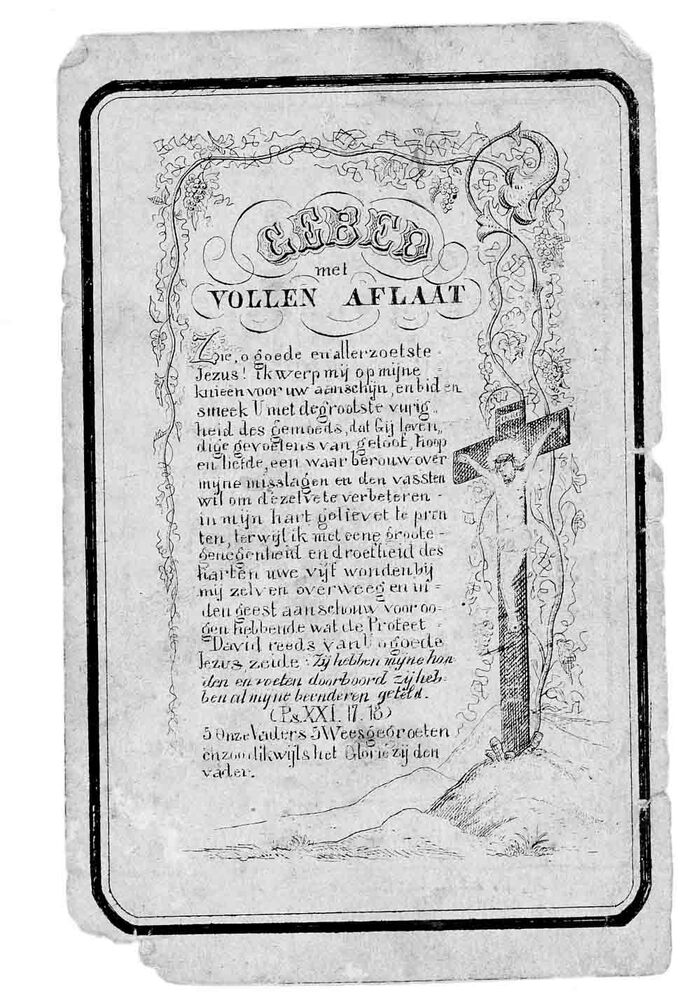 GEBED
met
VOLLEN AFLAAT
Zie, o goede en allerzoetste-
Jezus! ik werp mij op mijne
knieën voor uw aanschijn, en bid en
smeek U met de grootste vurig„
heid des gemoeds, dat Gij leven„
dige gevoelens van geloof, hoop
en liefde, een waar berouw over
mijne misslagen en den vassten
wil om dezelve te verbeteren -
in mijn hart gelievet te pren
ten, terwijl ik met eene groote-
genegenheid en droefheid des
harten uwe vijf wonden bij
mij zelven overweeg en in=
den geest aanschouw voor oo-
gen hebbende wat de Profeet -
David reeds van U o goede
Jezus zeide: Zij hebben mijne han
den en voeten doorboord zij heb-
ben al mijne beenderen geteld.
(Ps. XXI. 17. 18)
5 Onze Vaders 5 Weesgegroeten
en zoo dikwijls het Glorie zij den
vader.